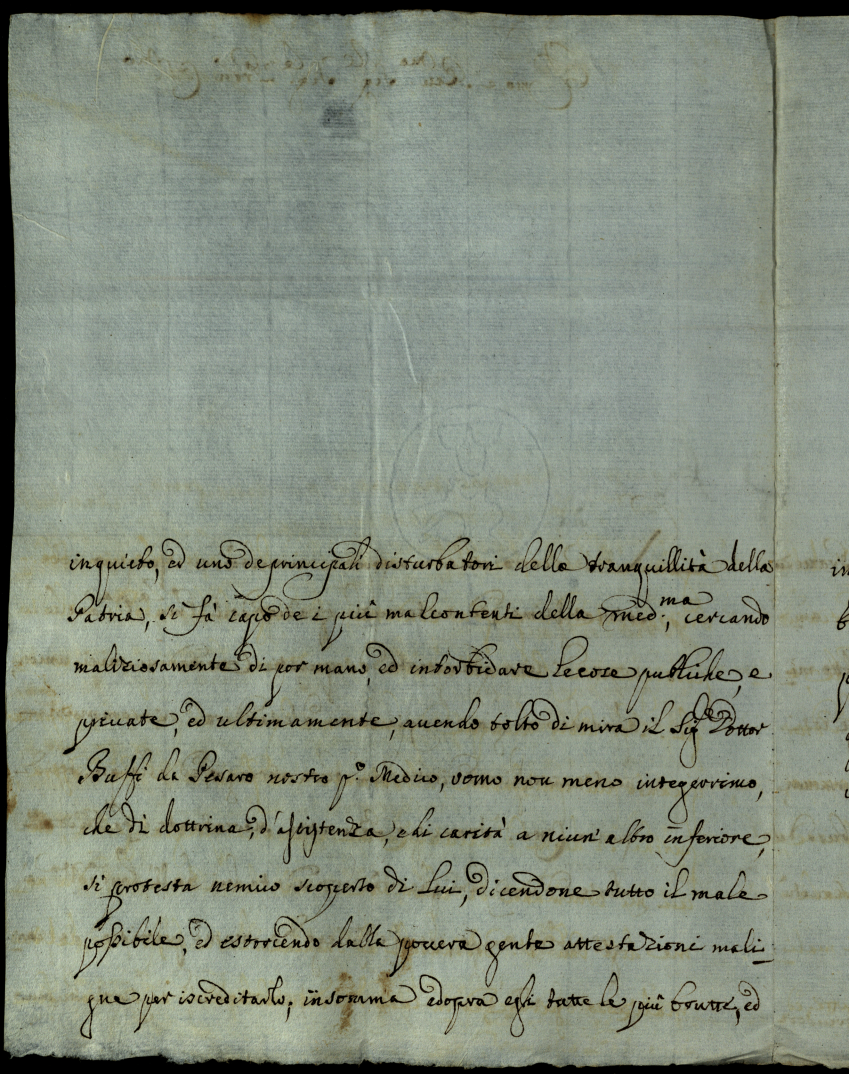 inquieto, ed uno de principali disturbatori della tranquillità della
Patria, si fà capo de i più malcontenti della med:ma, cercando
maliziosamente di por mano, ed intorbidare le cose publiche, e
private, ed ultimamente, avendo tolto di mira il Sig.re Dottor
Buffi da Pesaro nostro p.o Medico, uomo non meno integerrimo,
che di dottrina, d'assistenza, e di carità a niun' altro inferiore,
si protesta nemico scoperto di Lui, dicendone tutto il male
possibile, ed estorcendo dalla povera gente attestazioni mali-
gne per iscreditarlo; in somma adopra egli tutte le più brutte, ed